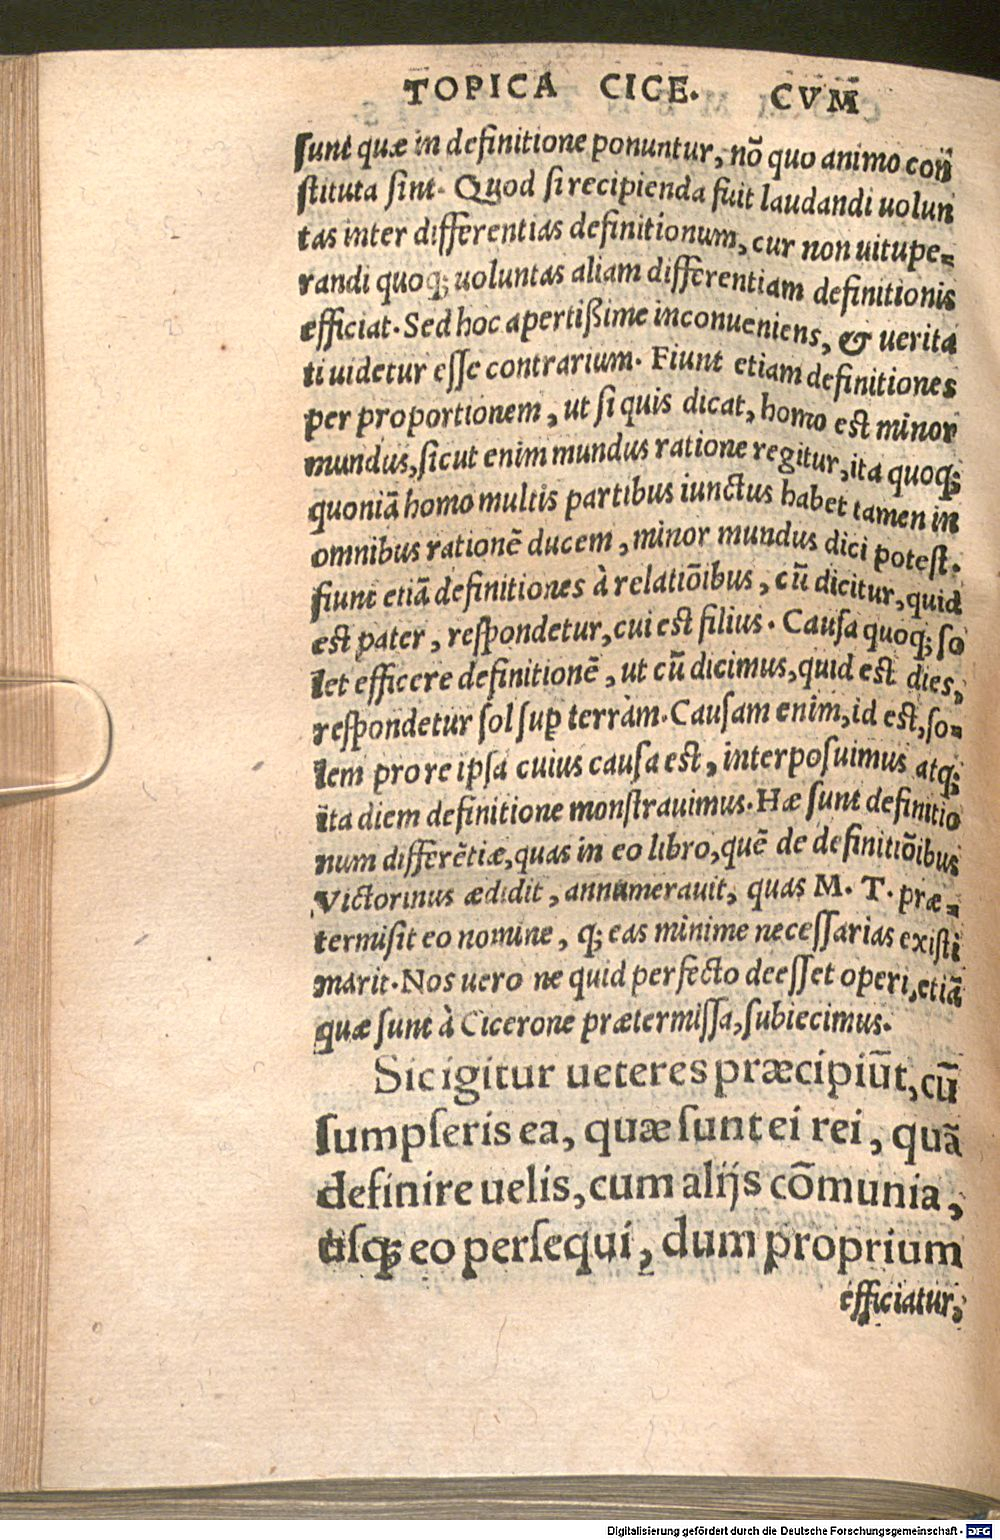 TOPICA CICE. CVM
ſunt quæ in definitione ponuntur, nō quo animo con
ſtituta ſint. Quod ſi recipienda fuit laudandi uolun
tas inter differentias definitionum, cur non uitupe=
randi quoq; uoluntas aliam differentiam definitionis
efficiat. Sed hoc apertißime inconueniens, & uerita
ti uidetur eſſe contrarium. Fiunt etiam definitiones
per proportionem, ut ſi quis dicat, homo est minor
mundus, ſicut enim mundus ratione regitur, ita quoq;
quoniā homo multis partibus iunctus habet tamen in
omnibus rationē ducem, minor mundus dici poteſt.
fiunt etiā definitiones à relatiōibus, cū dicitur, quid
est pater, reſpondetur, cui est filius. Cauſa quoq; ſo
let efficere definitionē, ut cū dicimus, quid est dies,
reſpondetur ſol ſup terràm. Cauſam enim, id est, ſo=
lem pro re ipſa cuius cauſa est, interpoſuimus atq;
ita diem definitione monſtrauimus. Hæ ſunt definitio
num differētiæ, quas in eo libro, quē de definitiōibus
Victorinus ædidit, annumerauit, quas M. T. præ=
termiſit eo nomine, q; eas minime neceſſarias exiſti
marit. Nos uero ne quid perfecto deeſſet operi, etiā
quæ ſunt à Cicerone prætermiſſa, ſubiecimus.
Sic igitur ueteres præcipiūt, cū
ſumpſeris ea, quæ ſunt ei rei, quā
definire uelis, cum alijs cōmunia,
uſq; eo perſequi, dum proprium
efficiatur,
Digitalisierung gefördert durch die Deutsche Forschungsgemeinschaft - DFG